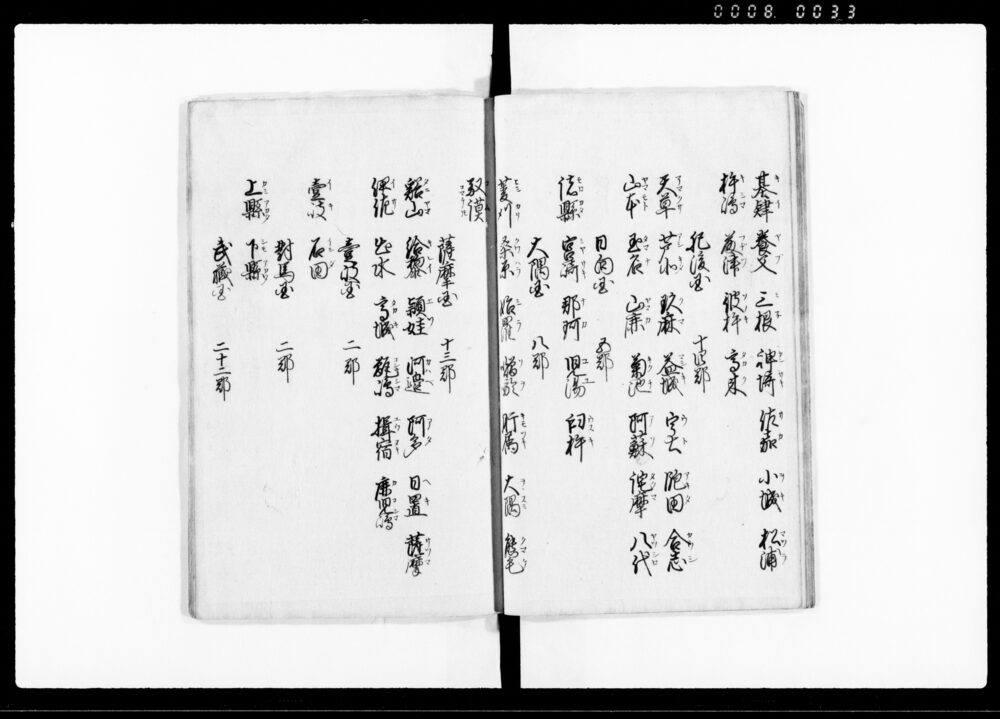 0008 0033
基肄 養父 三根 神埼 佐嘉 小城 松浦
杵嶋 藤津 彼杵 高来
肥後国 十四郡
天草 芦北 球麻 益城 宇土 飽田 合志
山本 玉名 山鹿 菊池 阿蘇 詫摩 八代
日向国 五郡
臼杵 児湯 那珂 宮崎 諸縣
大隅国 八郡
菱刈 桑原 姶羅 囎唹 肝属 大隅 熊毛
馭謨
薩摩国 十三郡
谿山 給黎 頴娃 河邊 阿多 日置 薩摩
伊作 出水 高城 甑嶋 揖宿 鹿児嶋
壹岐国 二郡
壹岐 石田
對馬国 二郡
上縣 下縣
武蔵国 二十二郡